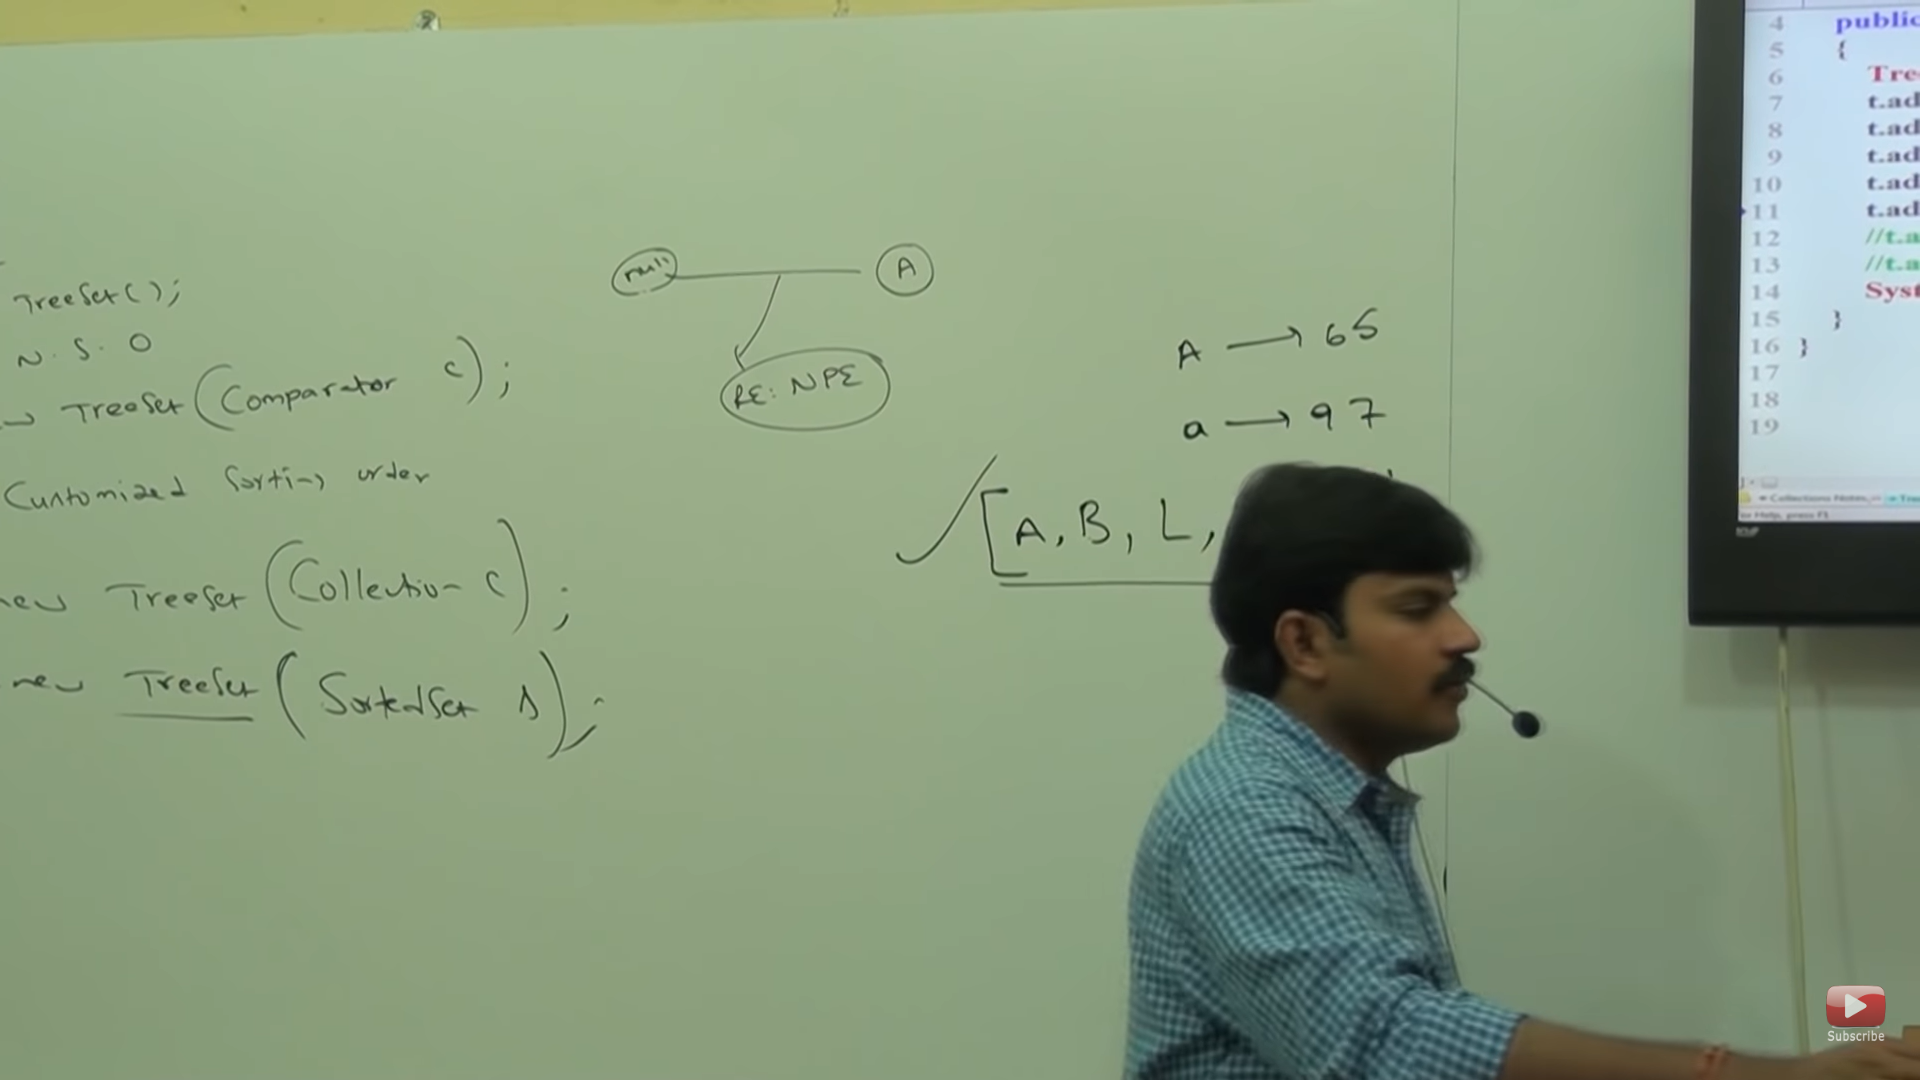 TreeSet();
N. S. O
TreeSet(Comparator c);
Customized Sorting order
new TreeSet(Collection c);
new TreeSet(SortedSet s);
null
A
RE: NPE
A → 65
a → 97
[A, B, L,
4 public
5 {
6 Tre
7 t.ad
8 t.ad
9 t.ad
10 t.ad
11 t.ad
12 //t.a
13 //t.a
14 Syst
15 }
16 }
17
18
19
Subscribe